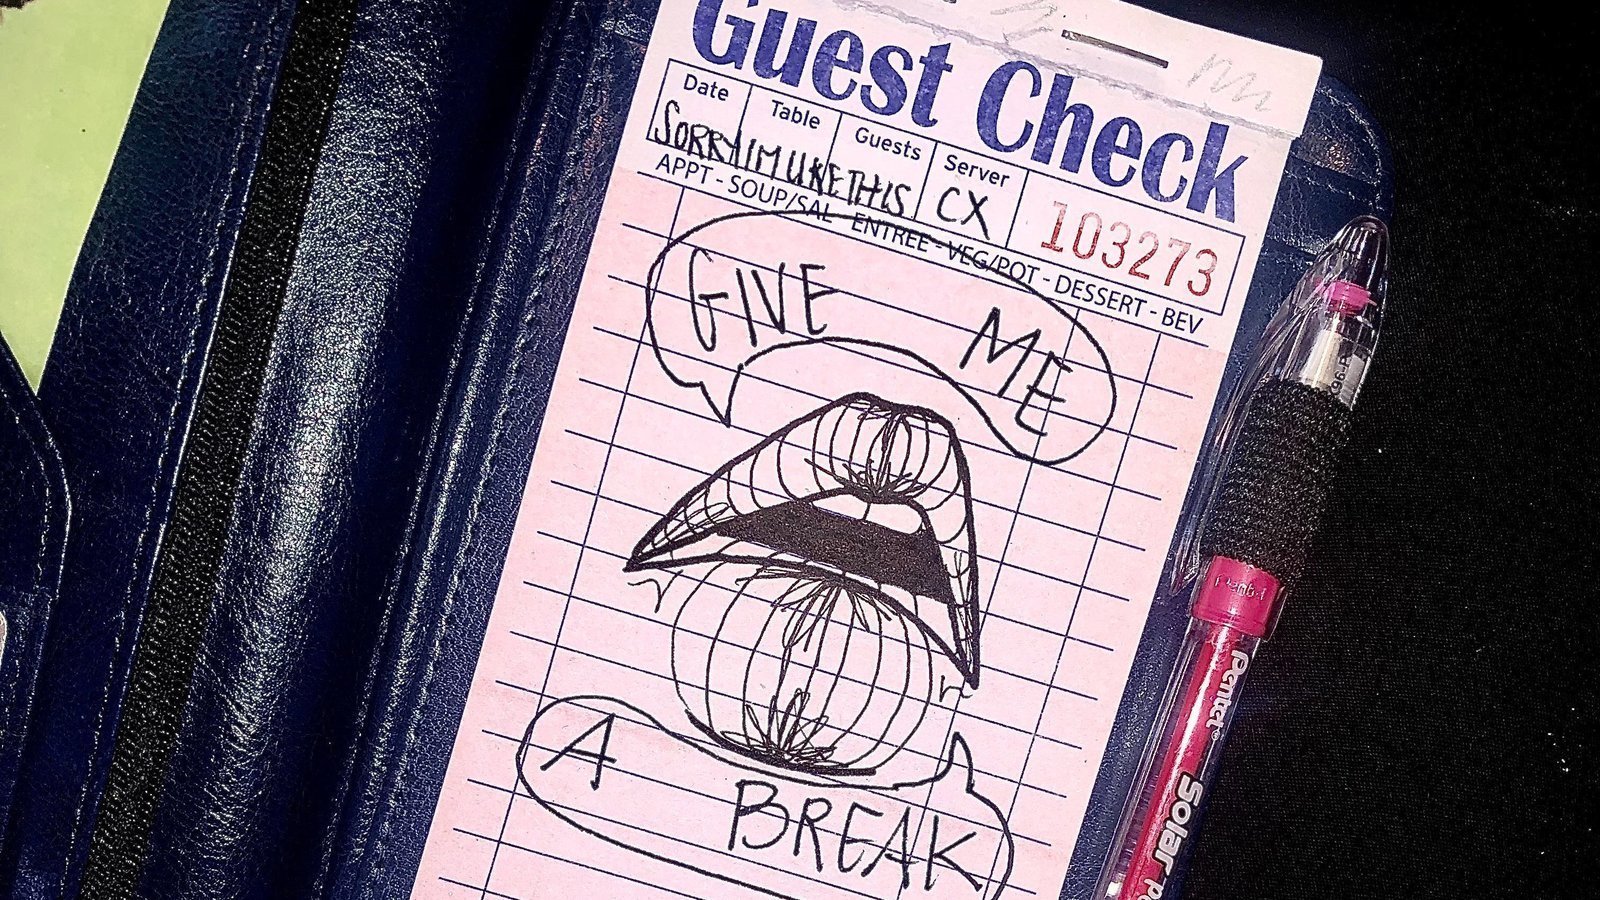 Guest Check
Date Table Guests Server
SORRY IM LIKE THIS CX 103273
APPT - SOUP/SAL ENTREE - VEG/POT - DESSERT - BEV
GIVE ME
A BREAK
Pentel
Solar